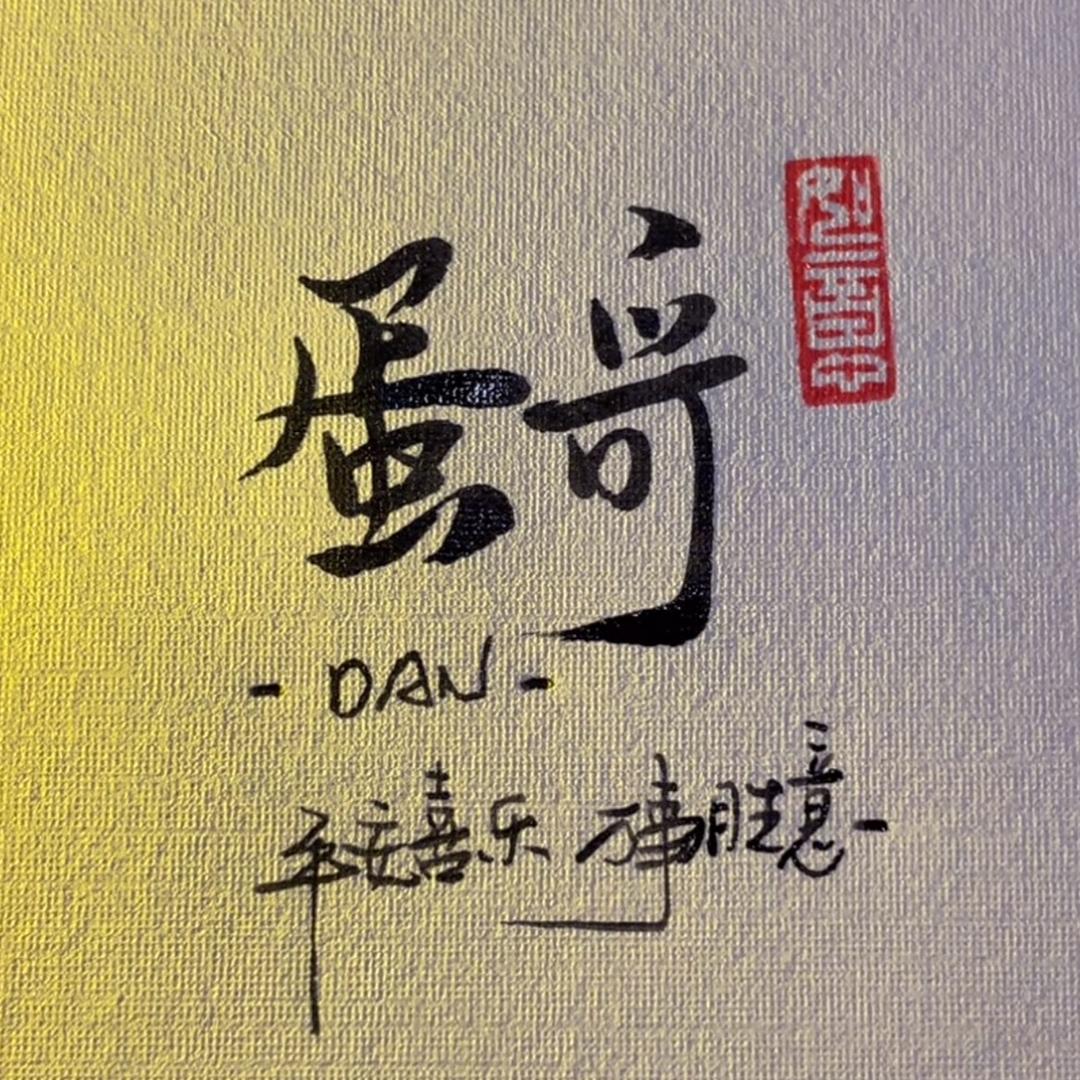 蛋哥
- DAN -
平安喜乐 万事胜意-